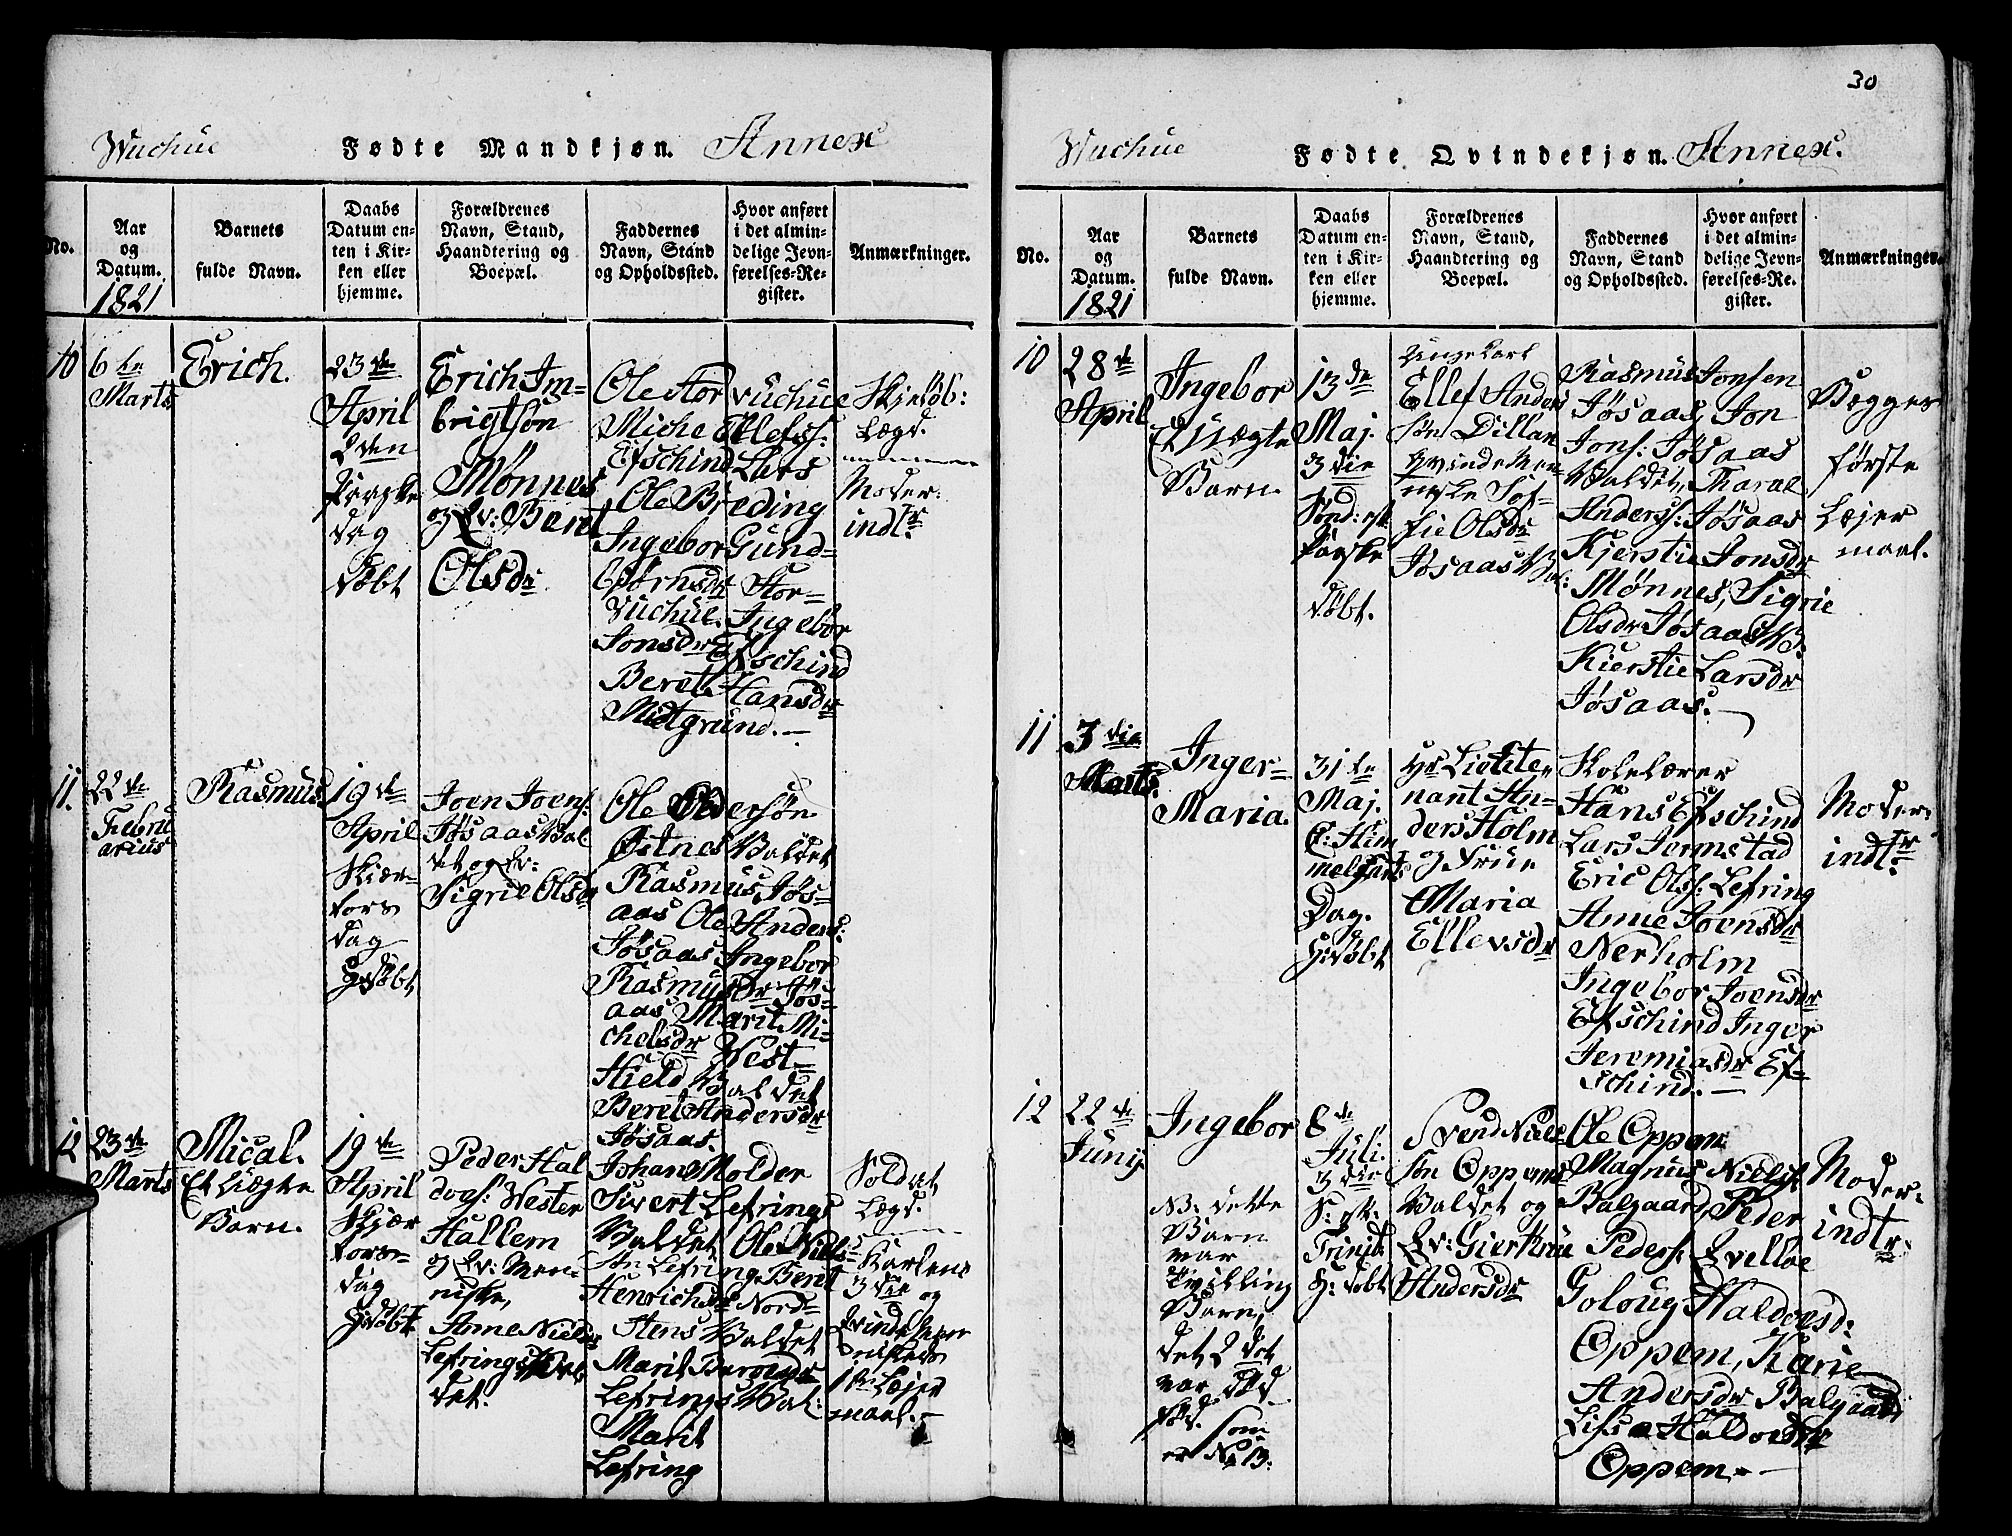 30
Wuchue Fødte Mandkjøn. Annex
No.
Aar og Datum.
1821
Barnets fulde Navn.
Daabs Datum enten i Kirken eller hjemme.
Forældrenes Navn, Stand, Haandtering og Boepæl.
Faddernes Navn, Stand og Opholdssted.
Hvor anført i det almindelige Jevnførelses-Register.
Anmærkninger.
10
6te
Marts
Erich.
23de
April
2den
Paaske
dag
døbt
Erich Im-
brigtsøn
Mønnes
og Qv: Beret
Olsdr
Ole Stor Vuchue
Miche Ellefs:
Efschind Lars
Ole Breding
Ingebor Gund-
biørnsdr Stor-
Vuchue. Ingebor
Jonsdr Efschind
Beret Hansdr
Midtgrund.
Skjeløb:
Lægd.
Moder:
indtr.
11.
22de
Febru
arius
Rasmus
19de
April
Skjær-
tors
dag
Hdøbt
Joen Joens:
Jøsaas Val
det og Qv:
Sigrie Olsdr
Ole Pedersøn
Østnes Valdet
Rasmus Jøs-
aas Ole Anders:
Jøsaas Ingebor
Rasmusdr Jøs-
aas Marit Mi-
chelsdr West-
Hield Valdet
Beret Andersdr
Jøsaas.
12
23de
Marts
Mical.
Et Uægte
Barn.
19de
April
Skjær
tors-
dag
Hdøbt
Peder Hal
dvgs: Wester
Hallem
og Qv: Men-
niske,
Anne Nielsdr
Lefrings Val
det.
Johans Molder
Sivert Lefrings
Valdet Ole Niels-
søn Lefring Beret
Henrichsdr Nord-
Stens Valdet
Marit
Lefrings Val:
Marit
Lefring
Soldat
Lægd.
Karlens
3die og
Qvinde Men
niskens
1ste Lejer
maal.
Wuchue Fødte Qvindekjøn. Annex.
No.
Aar og Datum.
1821
Barnets fulde Navn.
Daabs Datum enten i Kirken eller hjemme.
Forældrenes Navn, Stand, Haandtering og Boepæl.
Faddernes Navn, Stand og Opholdssted.
Hvor anført i det almindelige Jevnførelses-Register.
Anmærkninger.
10
28de
April
Ingebor
Et Uægte
Barn.
13de
Maj.
3die
Sønd: eft
Paaske
døbt.
Unge Carl
Ellef Anders
søn Dillan
Qvinde Men
neske Sof-
fie Olsdr
Jøsaas Val:
Rasmus Jonsen
Jøsaas, Jon
Jons: Jøsaas
Valdet, Taral
Anderss: Jøsaas
Kjerstie Jonsdr
Mønnes, Sigrie
Olsdr Jøsaas
Kierstie Larsdr
Jøsaas.
Begges
første
Lejer
maal.
11
3die
Marts.
Inger-
Maria.
31te
Maj.
C: Him
melfarts
Dag.
Hdøbt
Hr Liøite-
nant An-
ders Holm
og Frue
Maria
Ellevsdr
Skolelærer
Hans Efschind
Lars Jermstad
Eric Ols: Lefring
Anne Joensdr
Nerholm
Ingebor Joensdr
Efschind Inger
Jeremiasdr Ef-
schind.
Moder:
indtr.
12
22de
Junij
Ingebor
NB: dette
Barn
var
Tvilling
Barn,
det 2det
var død
fød. som
er No 13:
8de
Juli.
3die
S: eft:
Trinit:
H: døbt
Svend Niels
søn Oppems
Valdet og
Qv: Gierthrue
Andersdr
Ole Oppem
Magnus Nielss:
Balgaard, Peder
Peders: Qvelloe
Goloug Haldoesd:
Oppem, Karie
Andersdr Balgaard
Lissa Haldoesdr
Oppem.
Moder:
indtr.